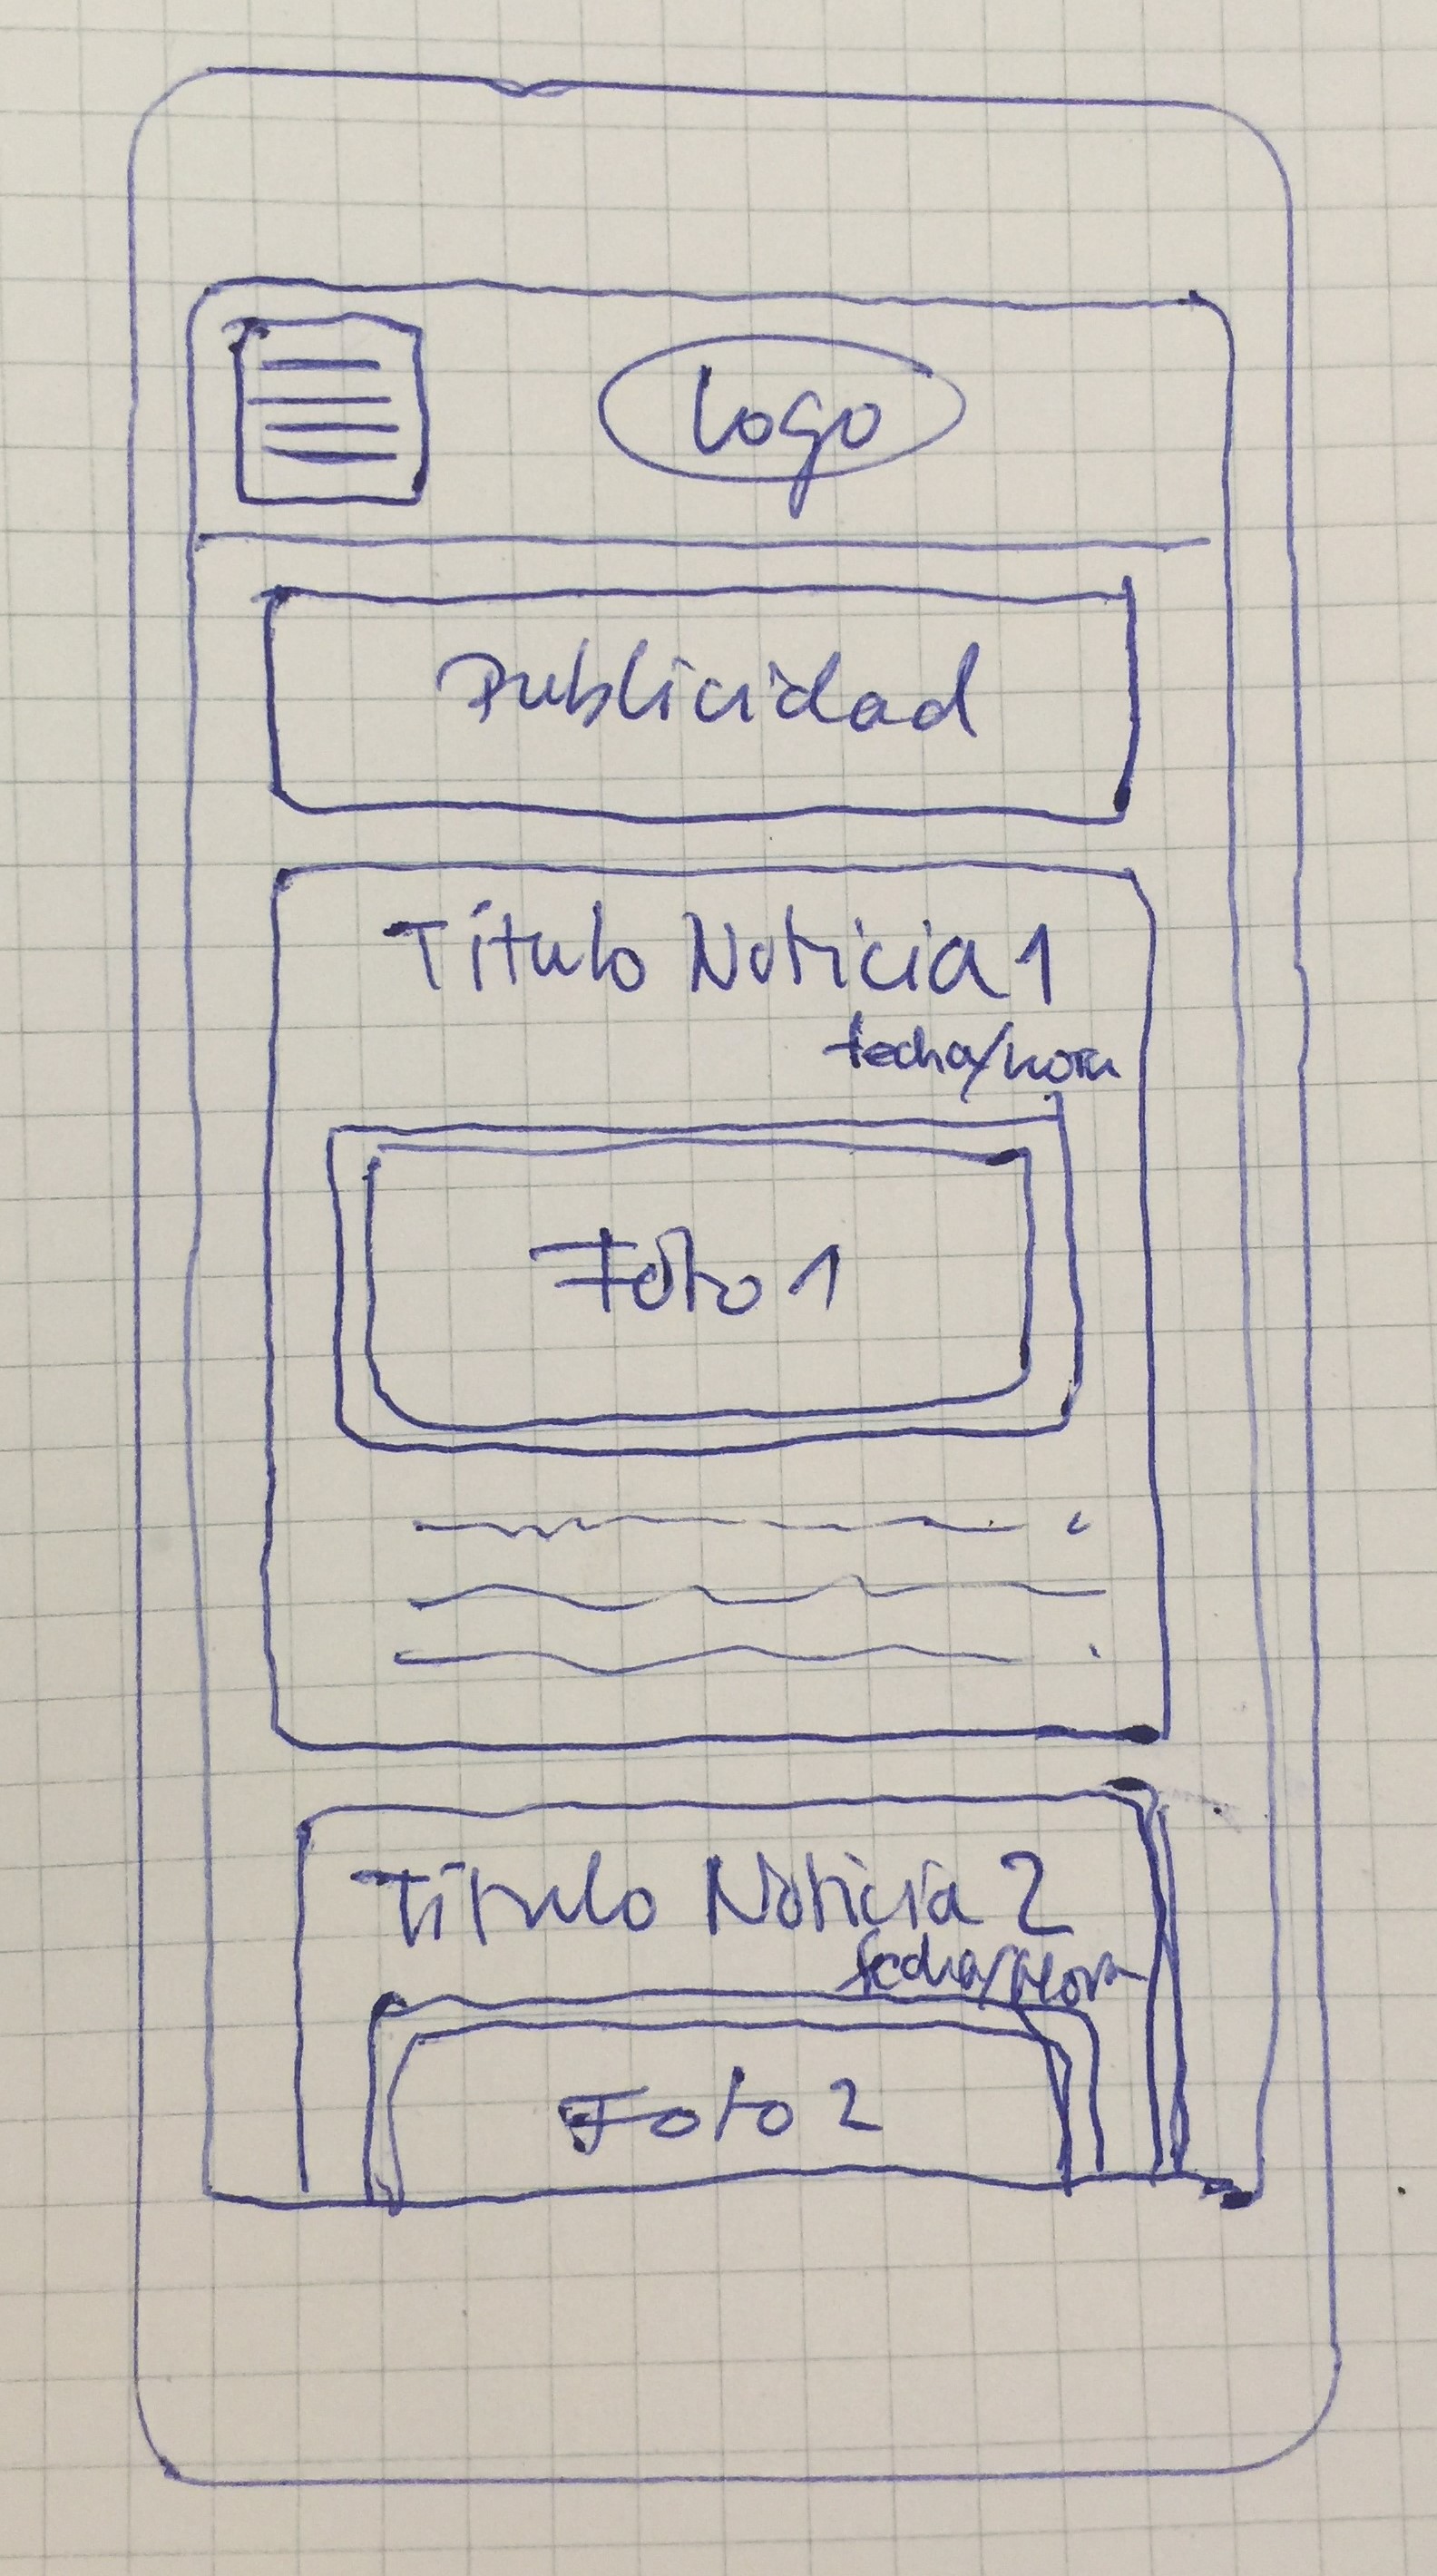 Logo
Publicidad
Título Noticia 1
fecha/hora
Foto 1
Título Noticia 2
fecha/hora
Foto 2